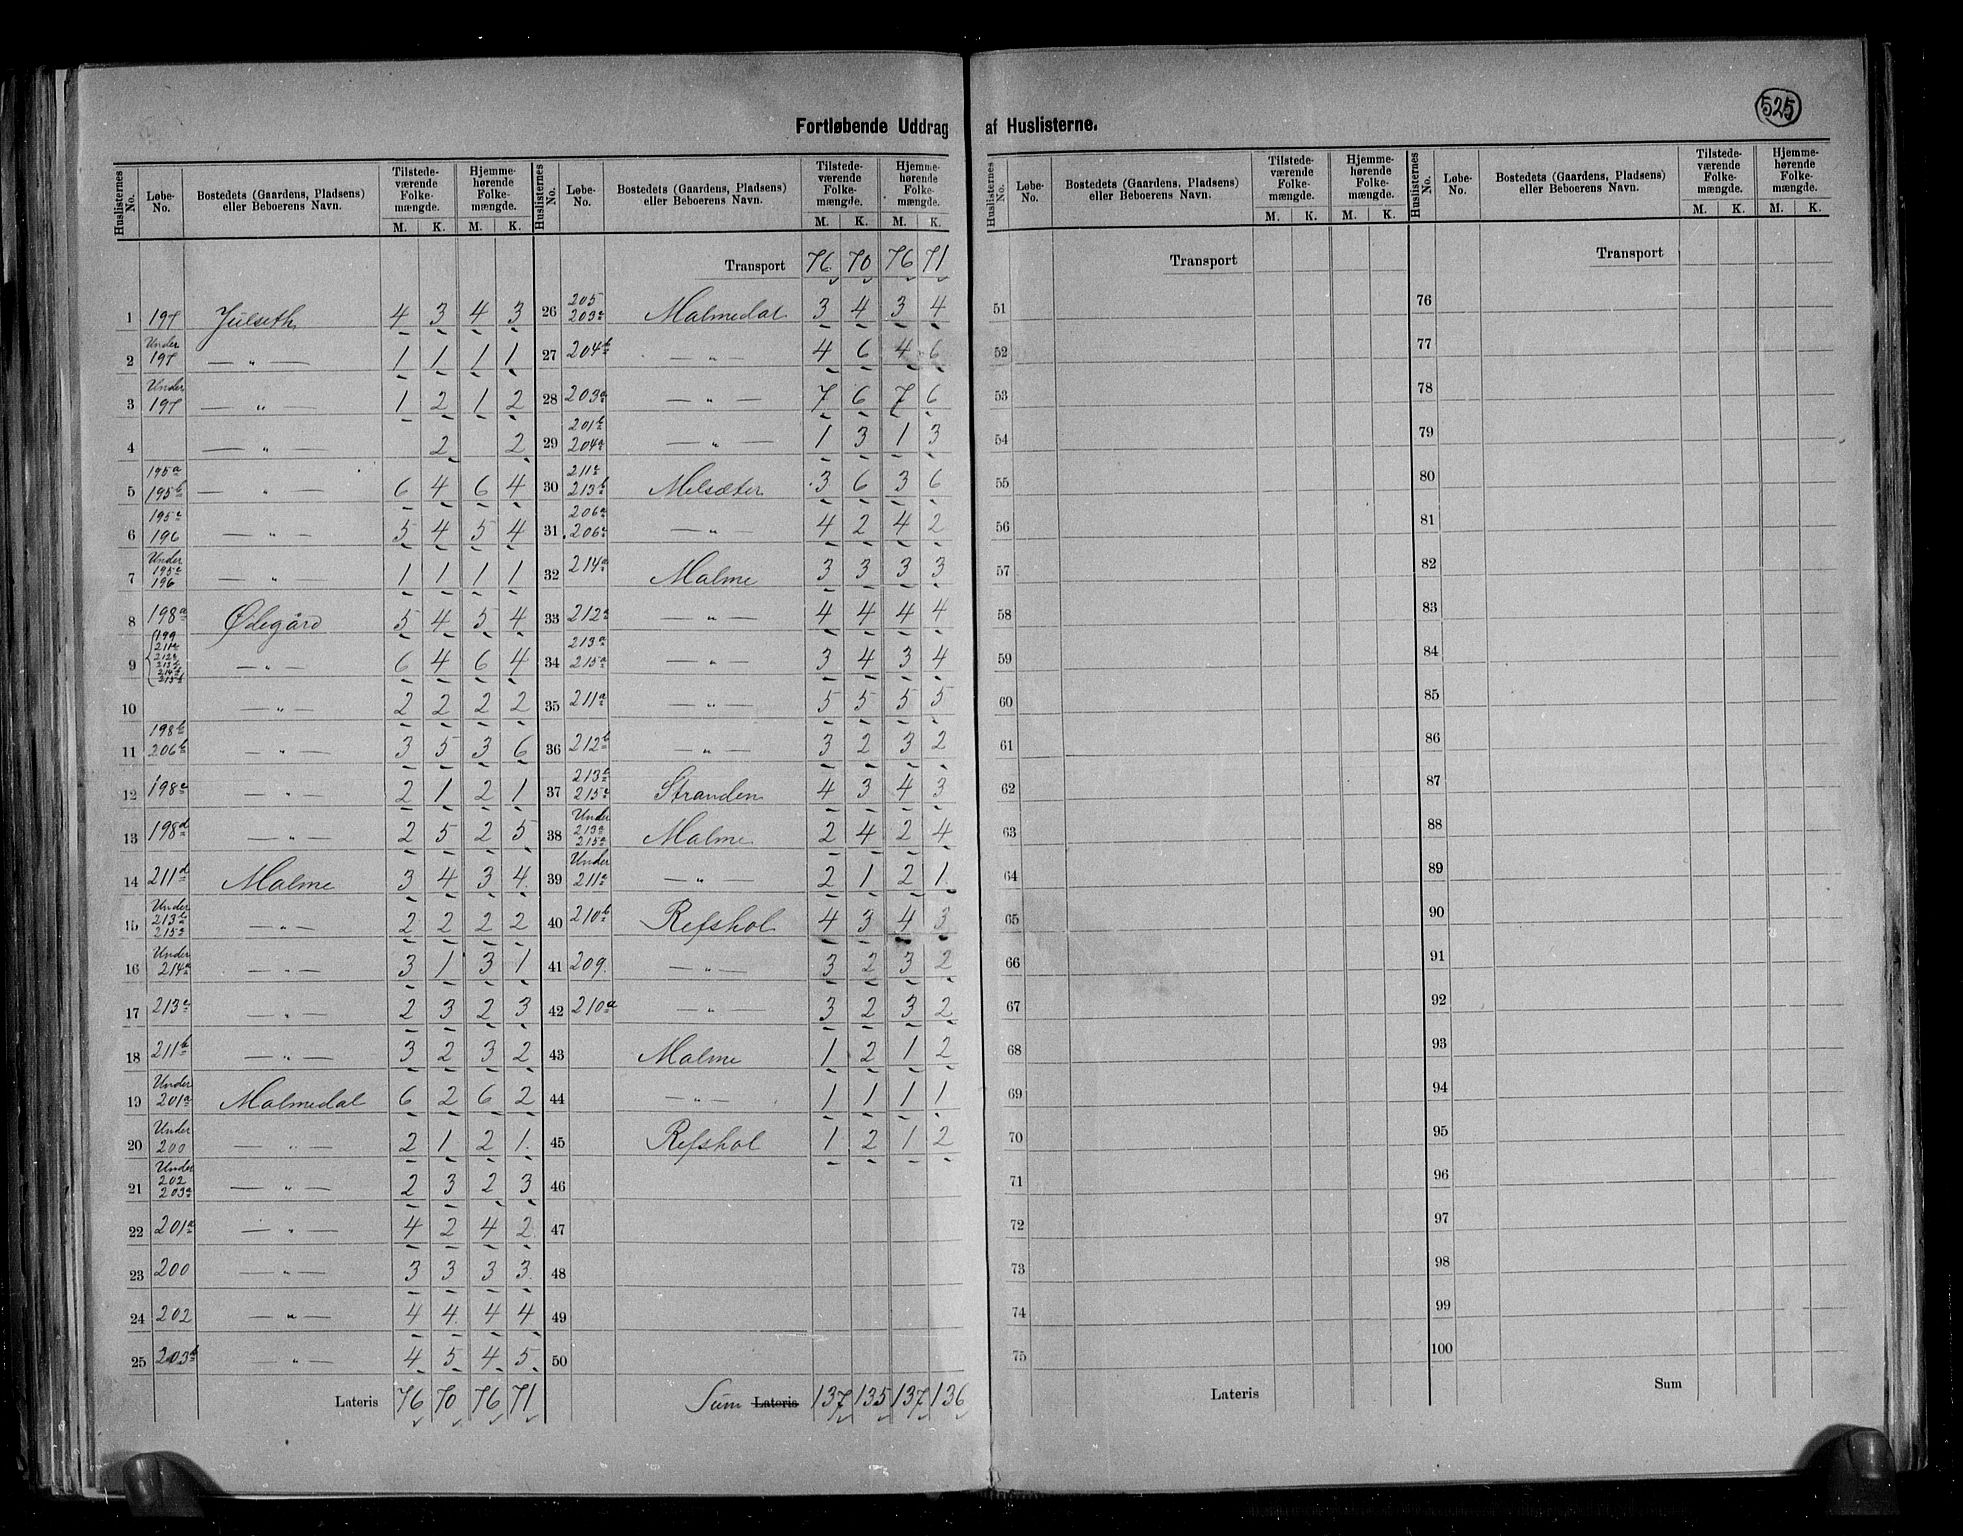 525
Fortløbende Uddrag af Huslisterne.
Huslisternes No. | Løbe-No. | Bostedets (Gaardens, Pladsens) eller Beboerens Navn. | Tilstede-værende Folke-mængde. M. K. | Hjemme-hørende Folke-mængde. M. K.
1 197 Julseth 4 3 4 3
2 Under 197 — " — 1 1 1 1
3 Under 197 — " — 1 2 1 2
4 — " — 2 2
5 195a 195b — " — 6 4 6 4
6 195c 196 — " — 5 4 5 4
7 Under 195c 196 — " — 1 1 1 1
8 198a Ødegård 5 4 5 4
9 199 211c — " — 6 4 6 4
10 — " — 2 2 2 2
11 198b 206b — " — 3 5 3 6
12 198c — " — 2 1 2 1
13 198d — " — 2 5 2 5
14 211d Malme 3 4 3 4
15 Under 213b 215a — " — 2 2 2 2
16 Under 214a — " — 3 1 3 1
17 213c — " — 2 3 2 3
18 211b — " — 3 2 3 2
19 Under 201a Malmedal 6 2 6 2
20 Under 200 — " — 2 1 2 1
21 Under 202 203a — " — 2 3 2 3
22 201a — " — 4 2 4 2
23 200 — " — 3 3 3 3
24 202 — " — 4 4 4 4
25 203b — " — 4 5 4 5
Lateris 76 70 76 71
Huslisternes No. | Løbe-No. | Bostedets (Gaardens, Pladsens) eller Beboerens Navn. | Tilstede-værende Folke-mængde. M. K. | Hjemme-hørende Folke-mængde. M. K.
Transport 76 70 76 71
26 205 203c Malmedal 3 4 3 4
27 204b — " — 4 6 4 6
28 203a — " — 7 6 7 6
29 201b 204a — " — 1 3 1 3
30 211c 213b Melsæter 3 6 3 6
31 206a 206c — " — 4 2 4 2
32 214a Malme 3 3 3 3
33 212a — " — 4 4 4 4
34 213a 215a — " — 3 4 3 4
35 211a — " — 5 5 5 5
36 212b — " — 3 2 3 2
37 213c 215c Stranden 4 3 4 3
38 Under 213a 215a Malme 2 4 2 4
39 Under 211a — " — 2 1 2 1
40 210b Refshol 4 3 4 3
41 209 — " — 3 2 3 2
42 210a — " — 3 2 3 2
43 Malme 1 2 1 2
44 — " — 1 1 1 1
45 Refshol 1 2 1 2
46
47
48
49
50
Sum Lateris 137 135 137 136
Huslisternes No. | Løbe-No. | Bostedets (Gaardens, Pladsens) eller Beboerens Navn. | Tilstede-værende Folke-mængde. M. K. | Hjemme-hørende Folke-mængde. M. K.
Transport
51
52
53
54
55
56
57
58
59
60
61
62
63
64
65
66
67
68
69
70
71
72
73
74
75
Lateris
Huslisternes No. | Løbe-No. | Bostedets (Gaardens, Pladsens) eller Beboerens Navn. | Tilstede-værende Folke-mængde. M. K. | Hjemme-hørende Folke-mængde. M. K.
Transport
76
77
78
79
80
81
82
83
84
85
86
87
88
89
90
91
92
93
94
95
96
97
98
99
100
Sum